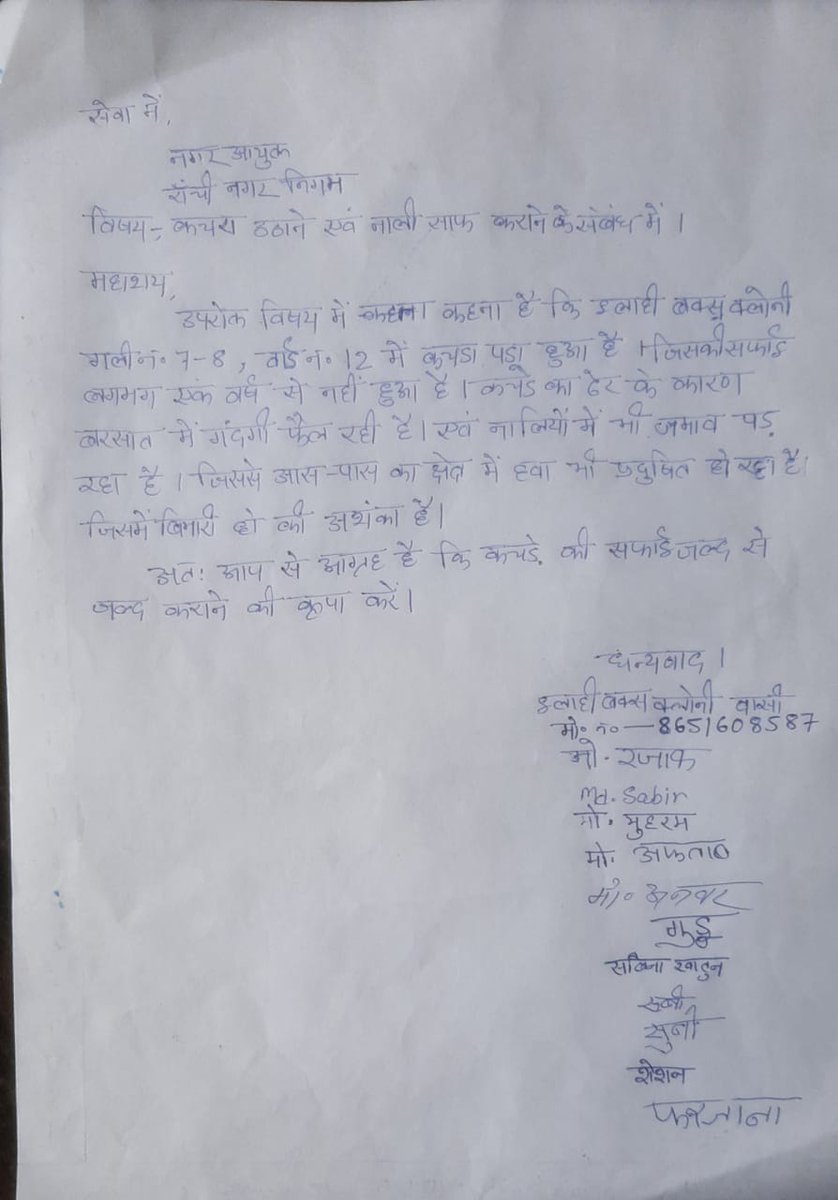 सेवा में,
नगर आयुक्त
राँची नगर निगम
विषय:- कचरा उठाने एवं नाली साफ कराने के संबंध में ।
महाशय,
उपरोक्त विषय में कहना है कि इलाही बक्स क्लोनी
गली नं॰ 7-8, वार्ड न॰ 12 में कचडा पड़ा हुआ है । जिसकी सफाई
लगभग एक वर्ष से नहीं हुआ है । कचडे का ढेर के कारण
बरसात में गंदगी फैल रही है । एवं नालियों में भी जमाव पड़
रहा है । जिससे आस-पास का क्षेत्र में हवा भी प्रदुषित हो रहा है।
जिसमें बिमारी हो की अशंका है।
अतः आप से आग्रह है कि कचडे की सफाई जल्द से
जल्द कराने की कृपा करें।
धन्यवाद ।
इलाही बक्स क्लोनी वासी
मो॰ न॰ - 8651608587
मो. रजाक
Md. Sabir
मो. मुहरम
मो. अफताब
मो॰ अनवर
गुड्डु
खातुन
सुनी
रोशन
फरजाना